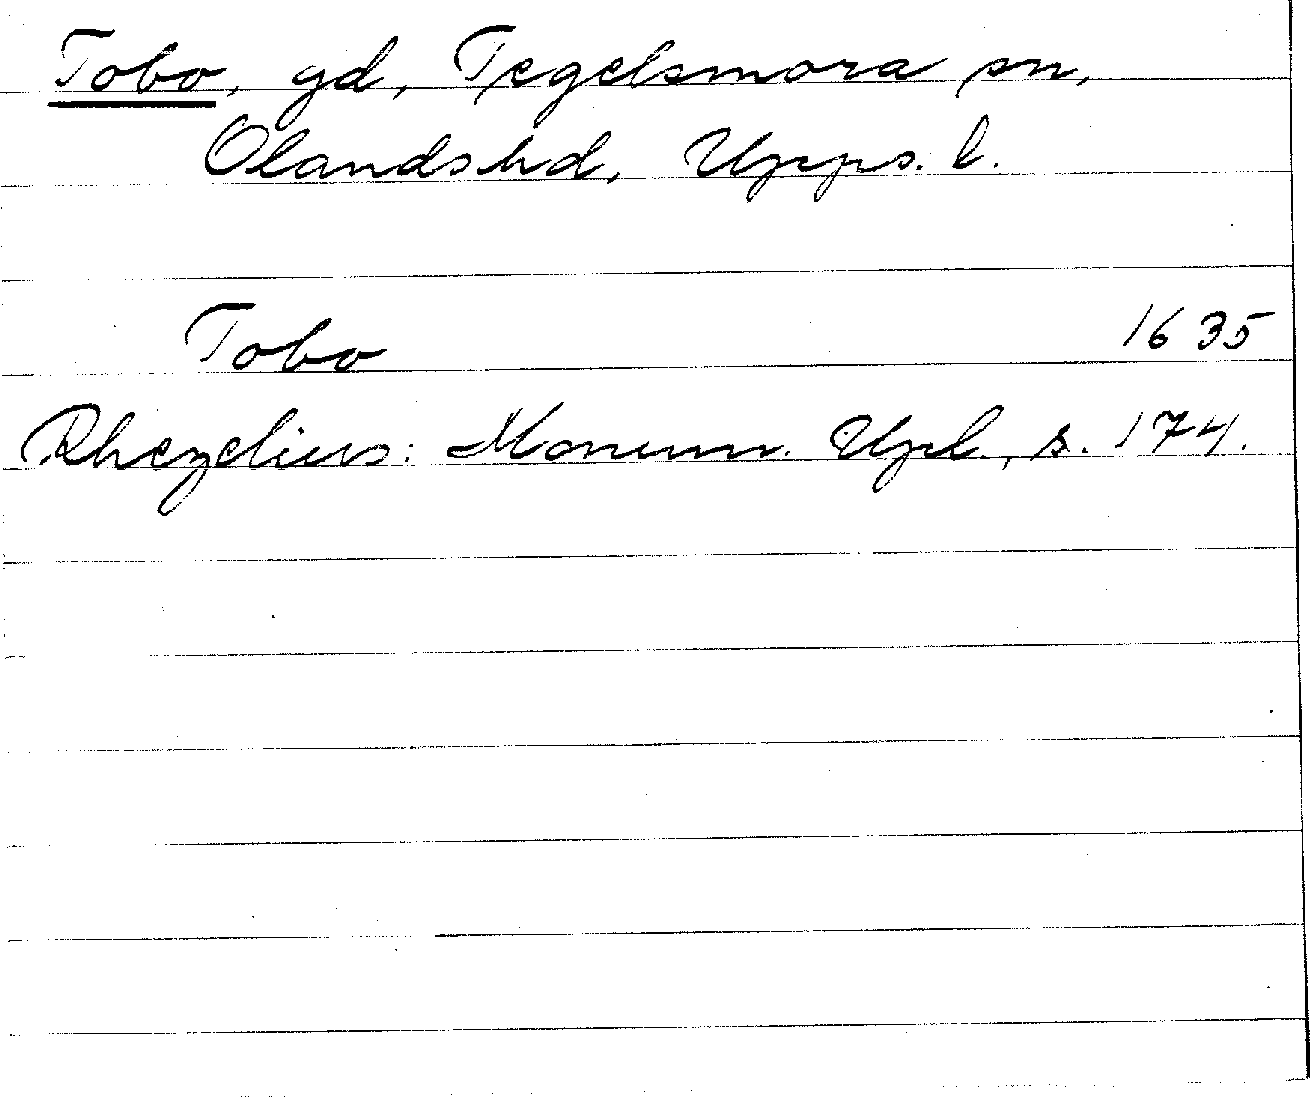 Tobo, gd, Tegelsmora sn,
Olandshd, Upps. l.
Tobo 1635
Rhezelius: Monum. Upl., s. 174.